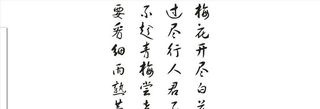 梅花开尽白
过尽行人君
不趁青梅尝
要看细雨熟